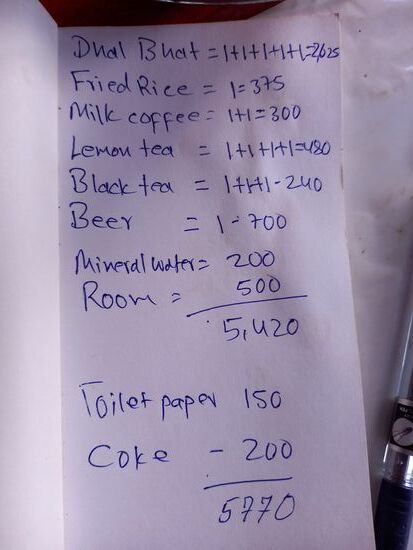 Dhal Bhat = 1+1+1+1+1=2,625
Fried Rice = 1=375
Milk coffee = 1+1=300
Lemon tea = 1+1+1+1=480
Black tea = 1+1+1-240
Beer = 1-700
Mineral water = 200
Room = 500
5,420
Toilet paper 150
Coke - 200
5770